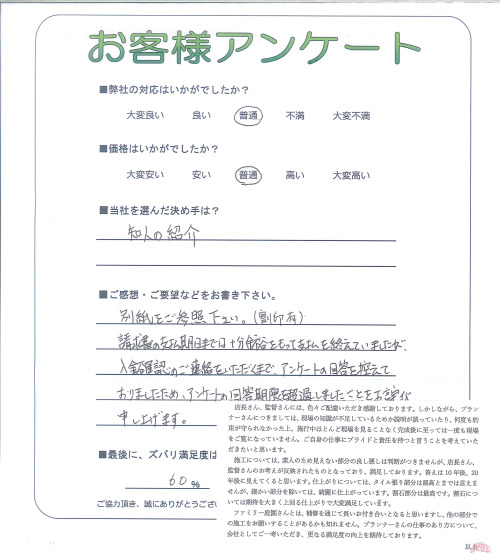 お客様アンケート
■弊社の対応はいかがでしたか？
大変良い 良い 普通 不満 大変不満
■価格はいかがでしたか？
大変安い 安い 普通 高い 大変高い
■当社を選んだ決め手は？
知人の紹介
■ご感想・ご要望などをお書き下さい。
別紙をご参照下さい。(割印有)
請求書の支払期日までは十分余裕をもって支払を終えていましたが、
入金確認のご連絡をいただくまで、アンケートの回答を控えて
おりましたため、アンケートの回答期限を超過しましたことをお詫び
申し上げます。
店長さん、監督さんには、色々ご配慮いただき感謝しております。しかしながら、プラン
ナーさんにつきましては、現場の知識が不足しているためか説明が誤っていたり、何度も約
束が守られなかった上、施行中はほとんど現場を見ることなく完成後に至っては一度も現場
をご覧になっていません。ご自身の仕事にプライドと責任を持つと言うことを考えていた
だきたいと思います。
施工については、素人のため見えない部分の良し悪しは判断がつきませんが、店長さん、
監督さんのお考えが反映されたものとなっており、満足しております。答えは10年後、20
年後に見えてくると思います。仕上がりについては、タイル張り部分は最高とまでは言えま
せんが、細かい部分を除いては、綺麗に仕上がっています。割石部分は最高です。割石につ
いては期待を大きく上回る仕上がりで大変満足しています。
ファミリー庭園さんとは、補修を通じて長いお付き合いとなると思いますし、他の部分で
の施工をお願いすることがあるかも知れません。プランナーさんの仕事のあり方について、
会社としてご一考いただき、更なる満足度の向上を期待しております。
以上
■最後に、ズバリ満足度は
60 %
ご協力頂き、誠にありがとうござい